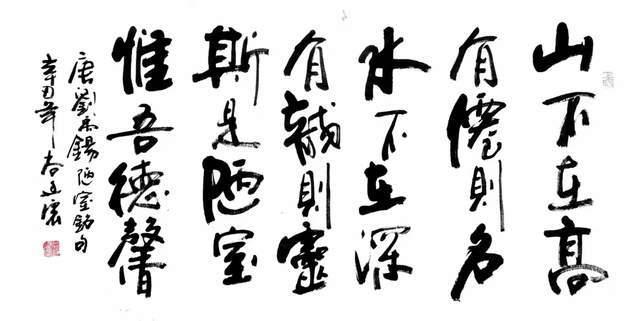 山不在高
有僊則名
水不在深
有龍則靈
斯是陋室
惟吾德馨
唐劉禹錫陋室銘句
辛丑年